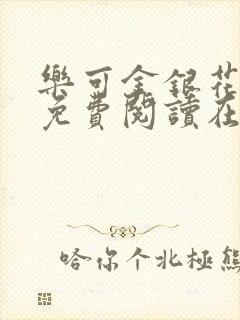 樂可金銀花
免費閱讀在
哈你个北極熊